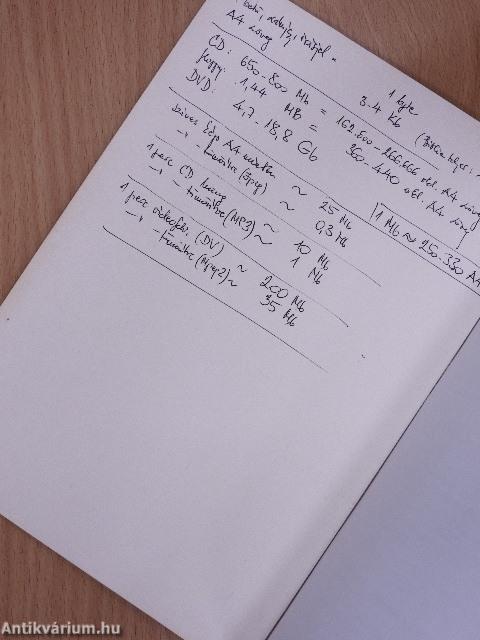 betű, szám, írásjel = 1 byte
A4 szöveg 3-4 Kb
CD: 650-800 Mb = 162.500-266.666 old. A4 szöveg
floppy: 1,44 MB = 360-440 old. A4 szöveg
DVD: 4,7-18,8 Gb
1 Mb ≈ 250-330 A4
színes kép A4 méretben ~ 25 Mb
→ - tömörítve (Jpeg) ~ 0,3 Mb
1 perc CD hang ~ 10 Mb
→ - tömörítve (MP3) ~ 1 Mb
1 perc videofilm (DV) ~ 200 Mb
→ - tömörítve (Mpeg2) ~ 35 Mb
Antikvárium.hu